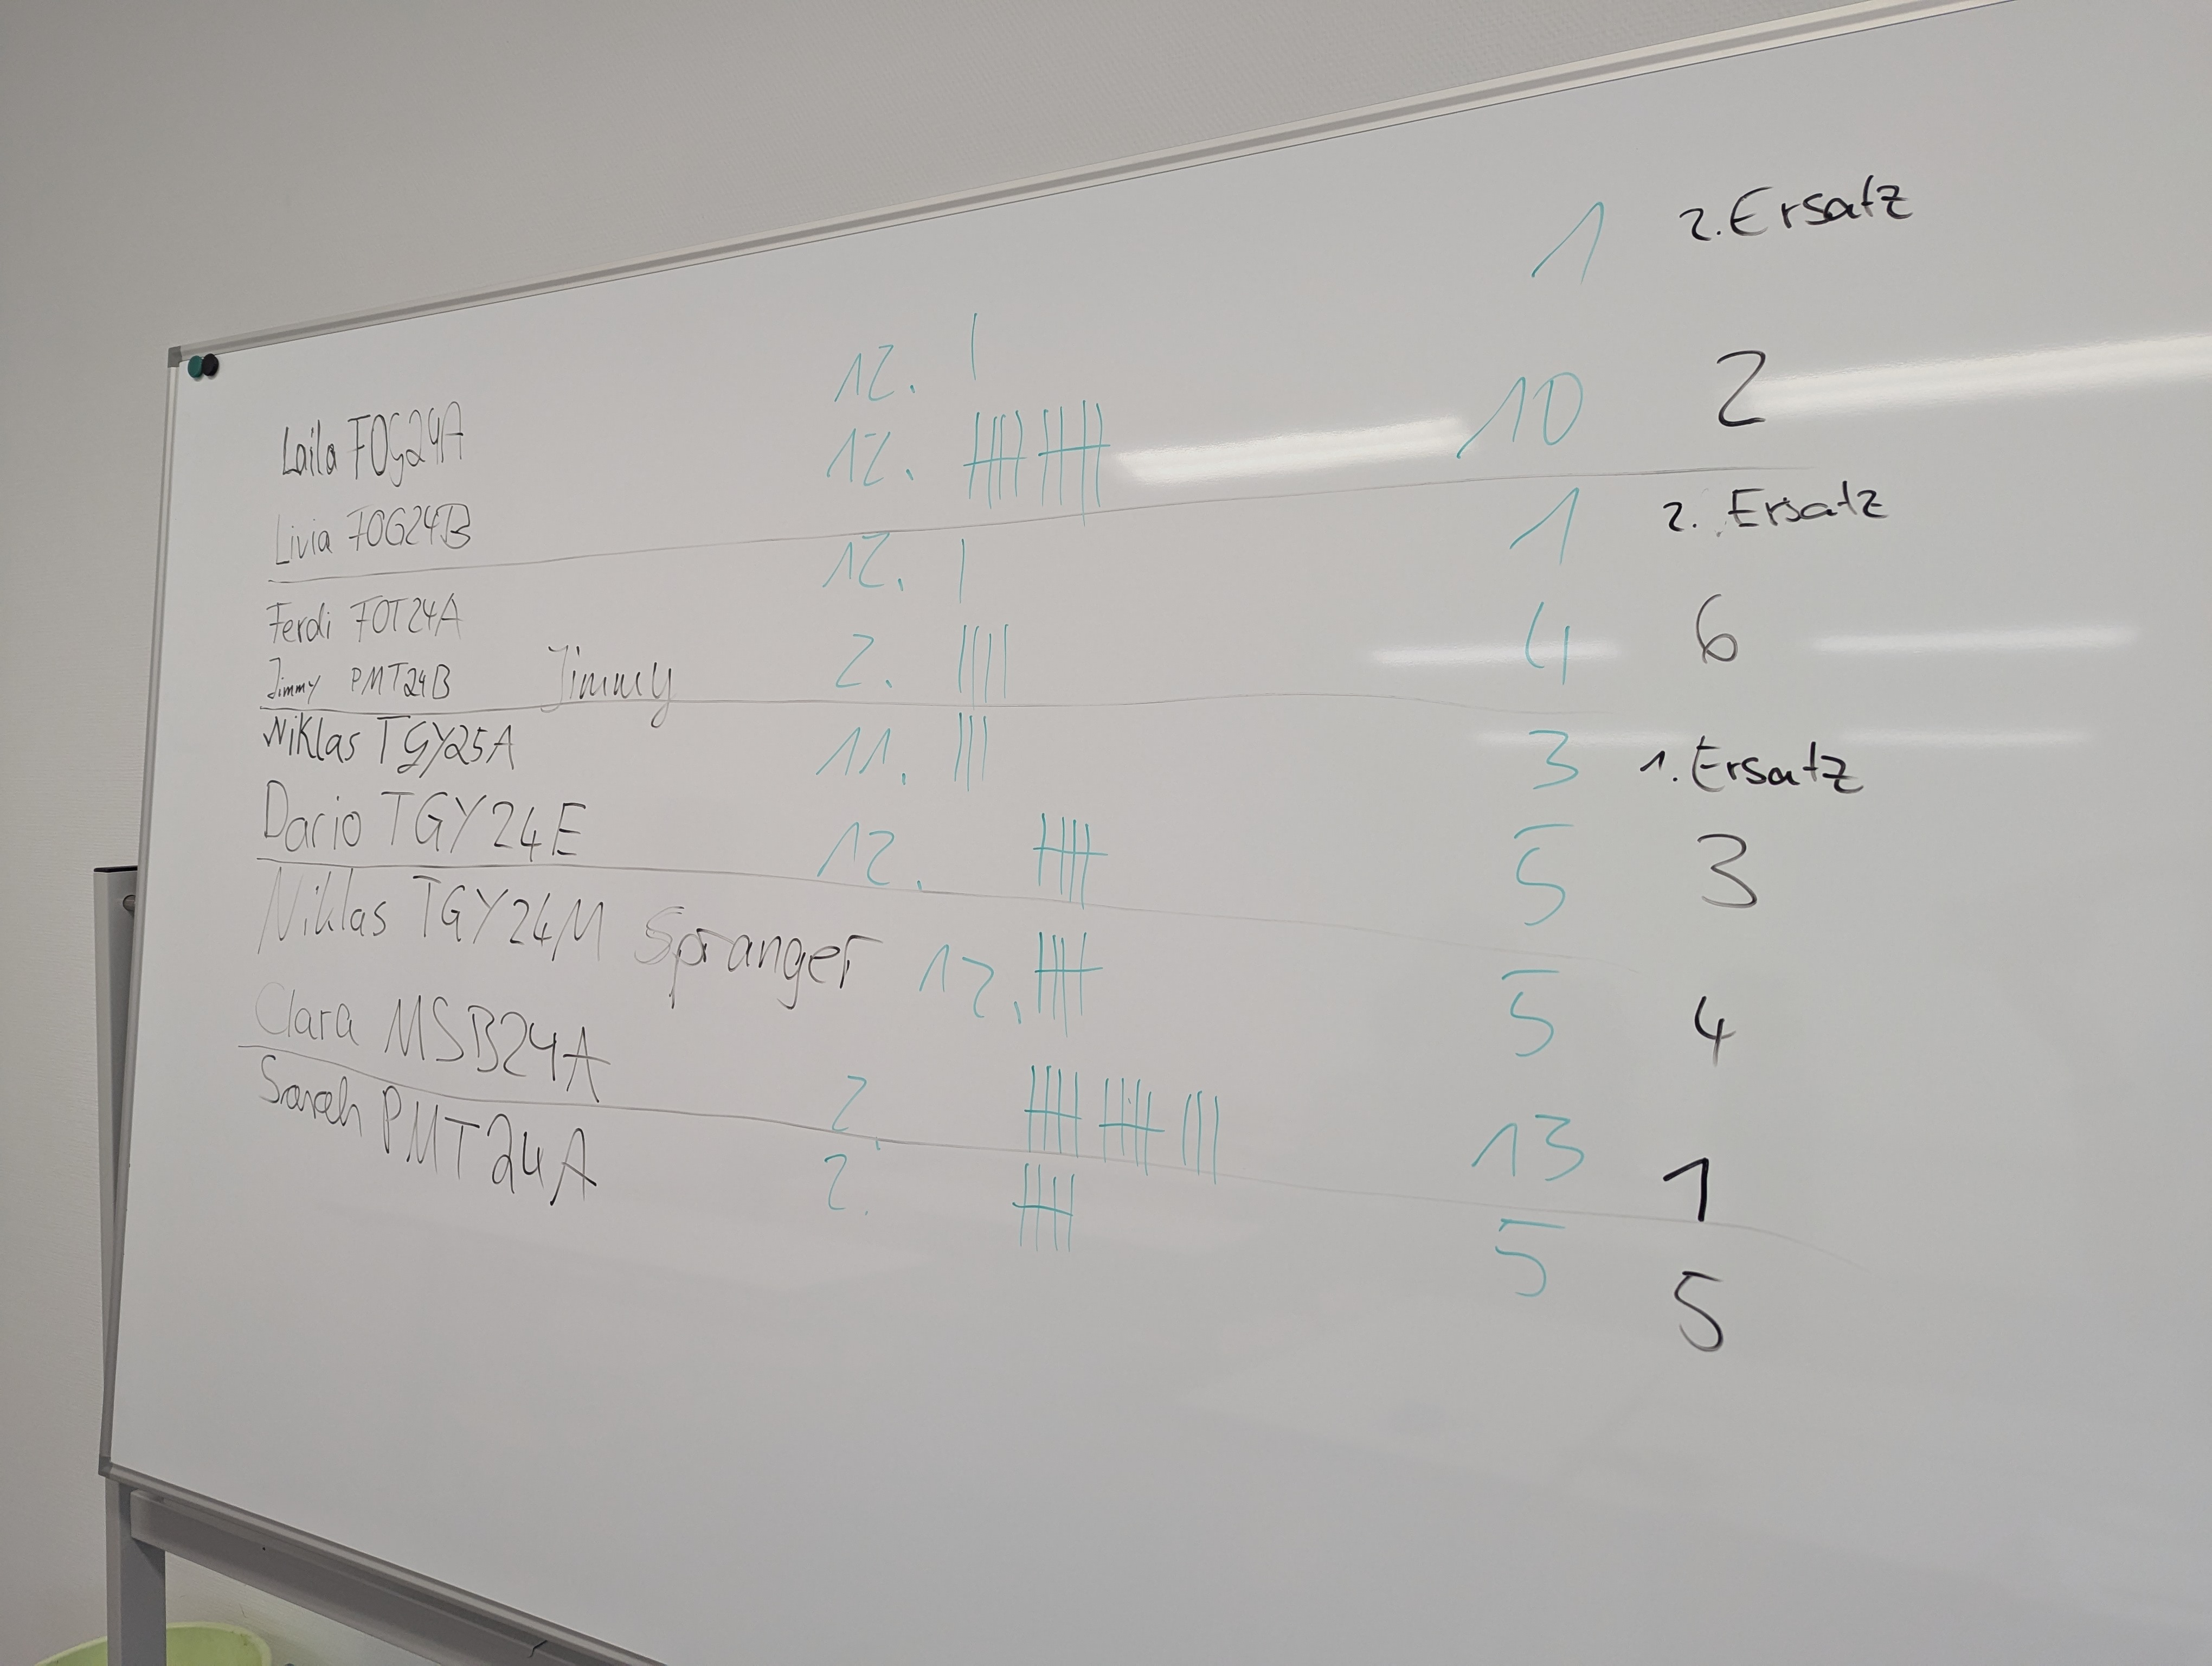 Laila FOG24A 12. | 1 2. Ersatz
Livia FOG24B 12. 10 2
Ferdi FOT24A 12. | 1 2. Ersatz
Jimmy PMT24B Jimmy 2. |||| 4 6
Niklas TGY25A 11. ||| 3 1. Ersatz
Dario TGY24E 12. 5 3
Niklas TGY24M Spranger 12. 5 4
Clara MSB24A 2. 13 1
Sarah PMT24A 2. 5 5